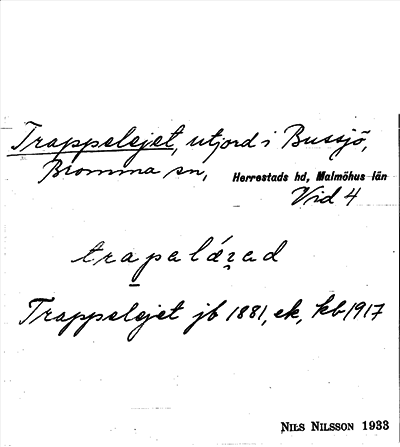 Trappelejet, utjord i Bussjö,
Bromma sn, Herrestads hd, Malmöhus län
Vid 4
trapalǽ̨ad
Trappelejet jb 1881, ek, kb 1917
NILS NILSSON 1933